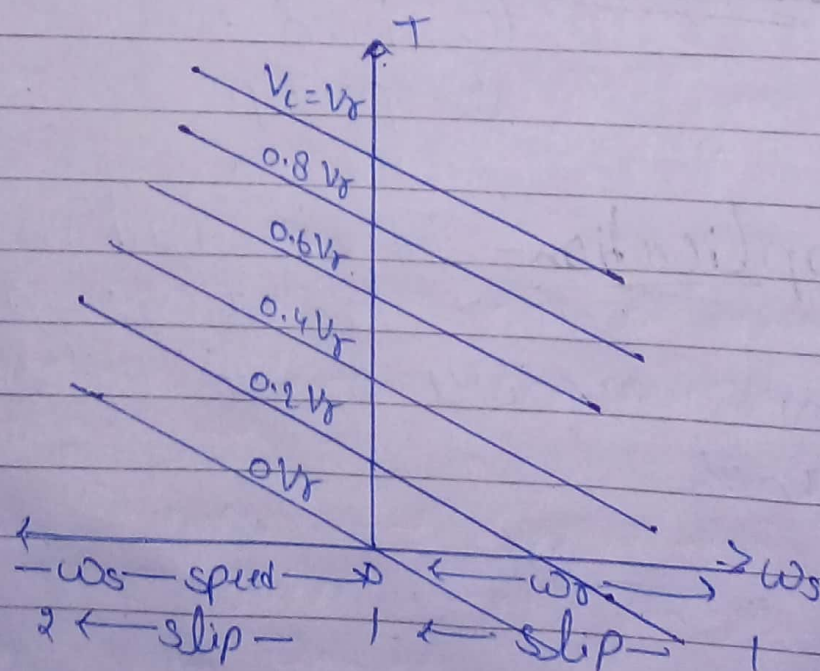 T
Vc = Vr
0.8 Vr
0.6 Vr
0.4 Vr
0.2 Vr
0Vr
-ωs — speed → 0 ← ωr → ωs
2 ← slip — 1 ← slip → 1